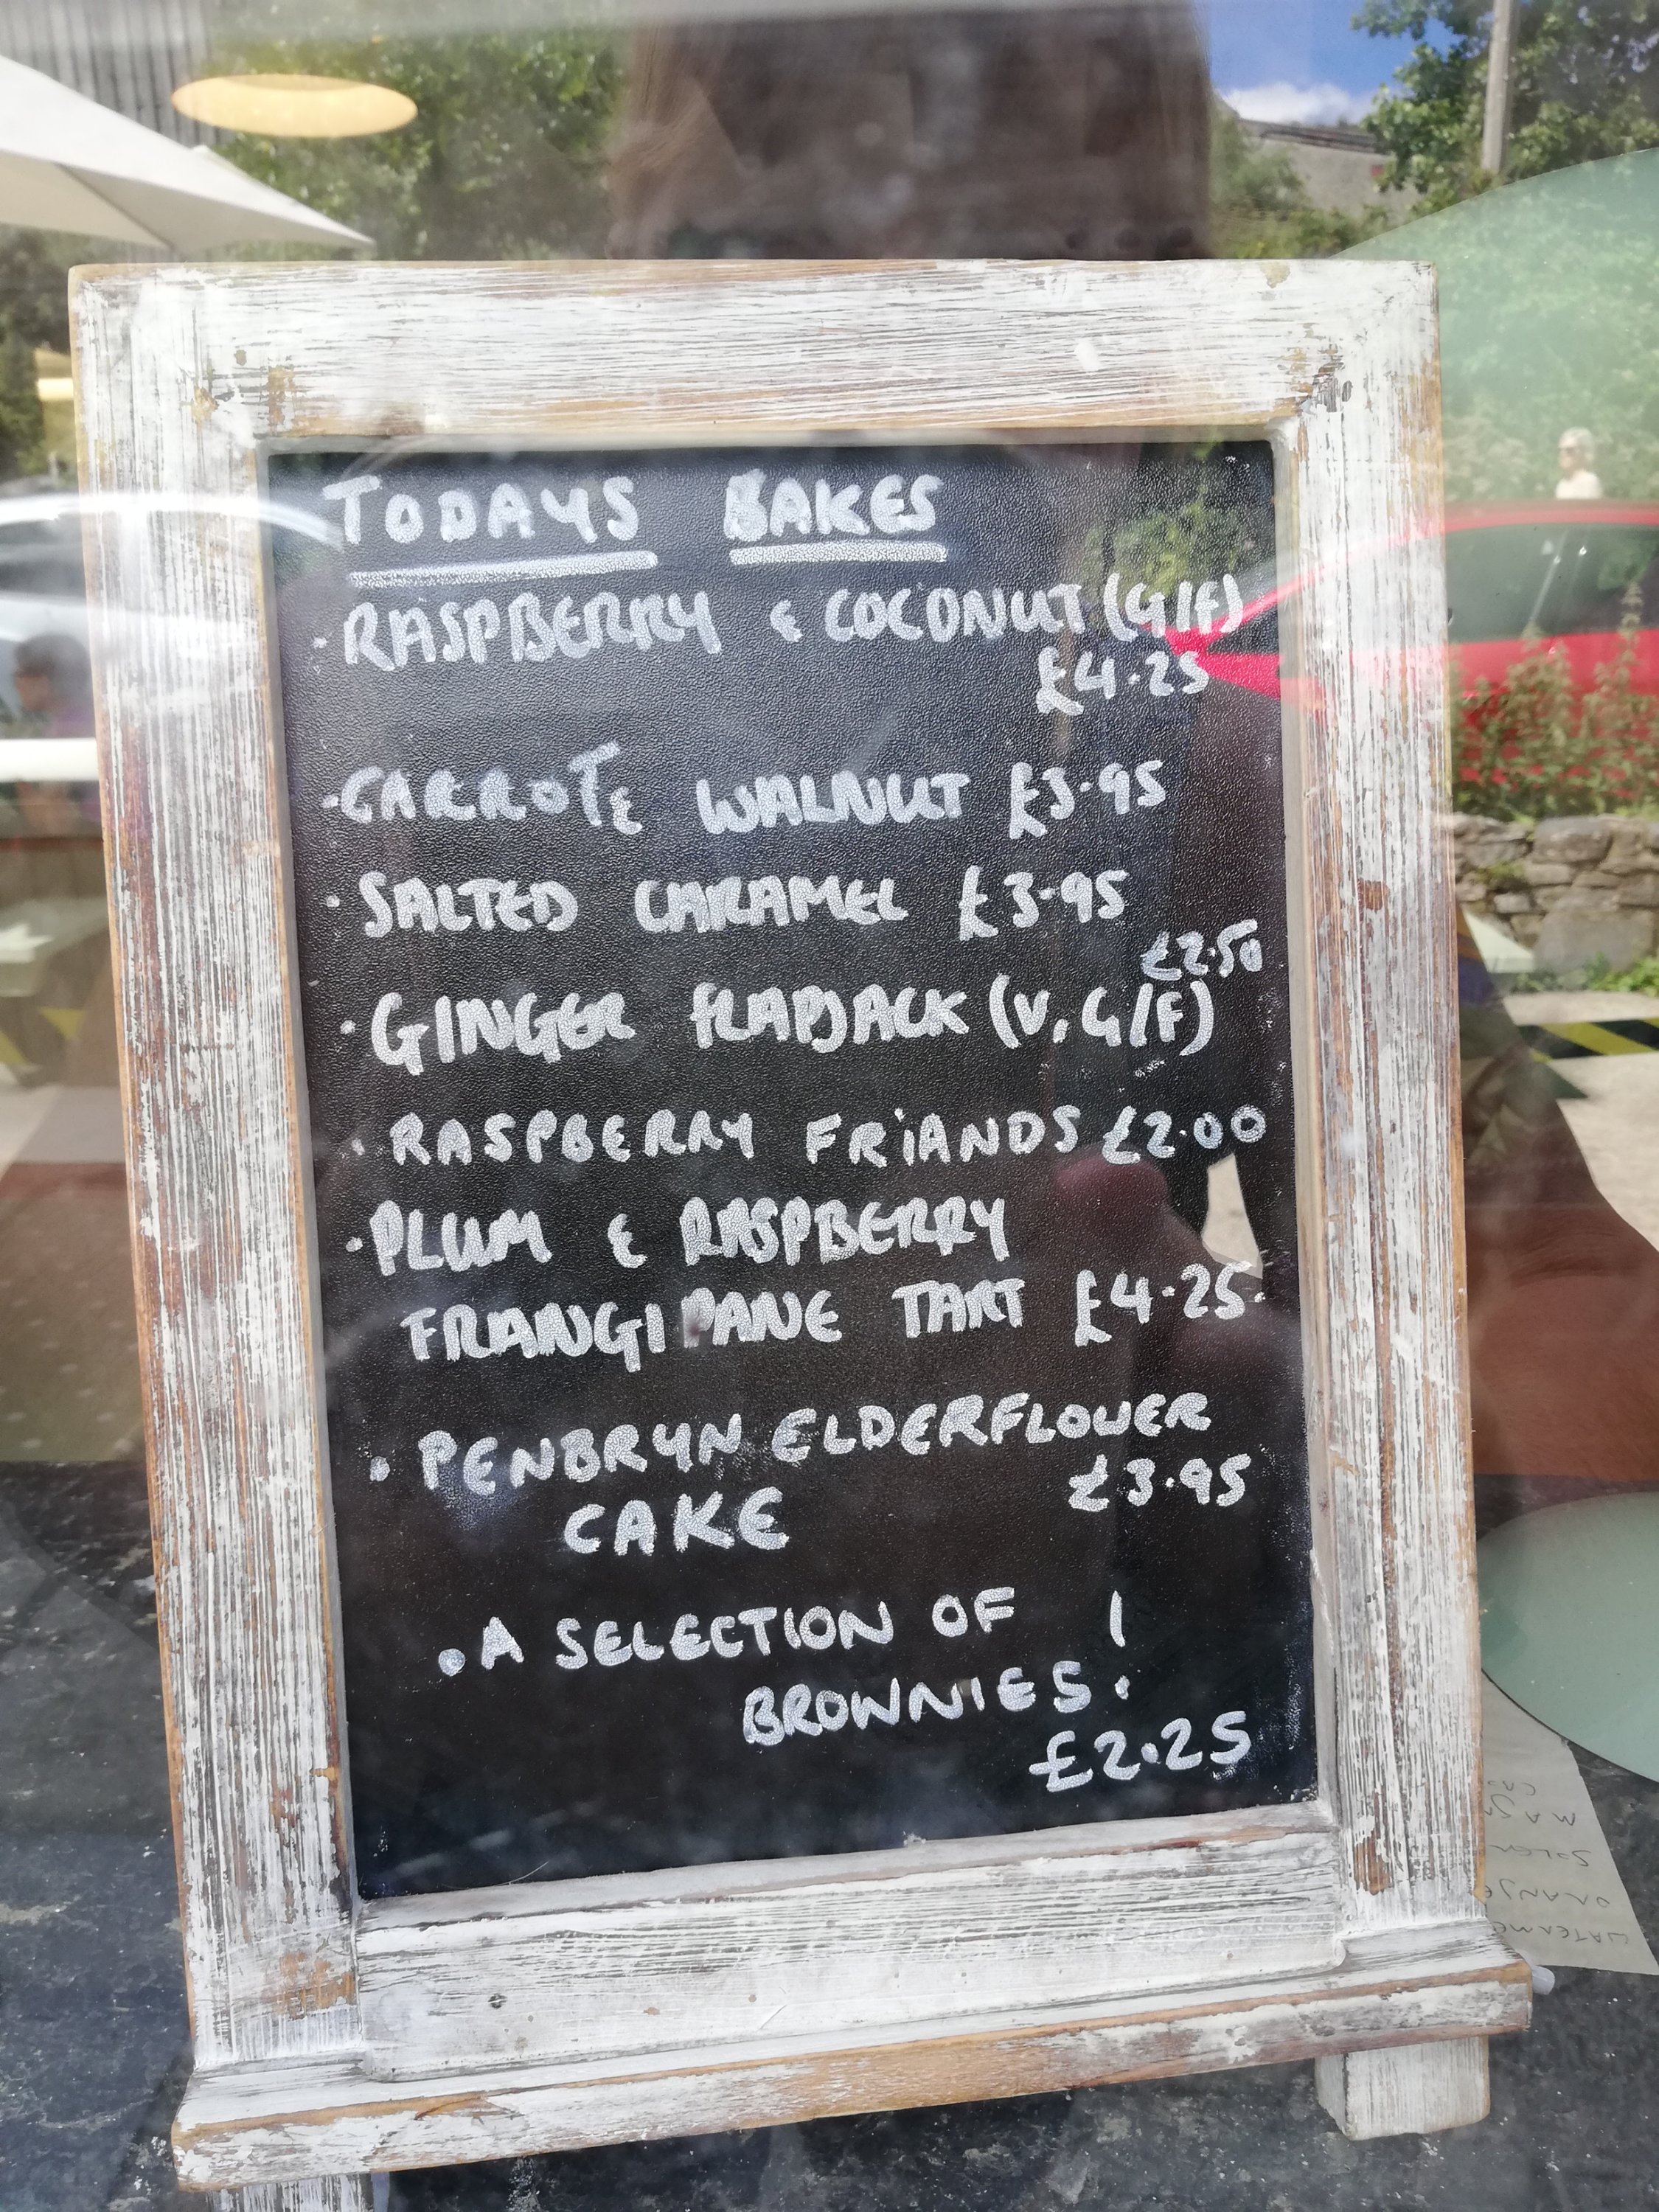 TODAYS BAKES
· RASPBERRY & COCONUT (G/F)
£4.25
· CARROT & WALNUT £3.95
· SALTED CARAMEL £3.95
£2.50
· GINGER FLAPJACK (V, G/F)
· RASPBERRY FRIANDS £2.00
· PLUM & RASPBERRY
FRANGIPANE TART £4.25.
· PENBRYN ELDERFLOWER
CAKE £3.95
· A SELECTION OF
BROWNIES!
£2.25